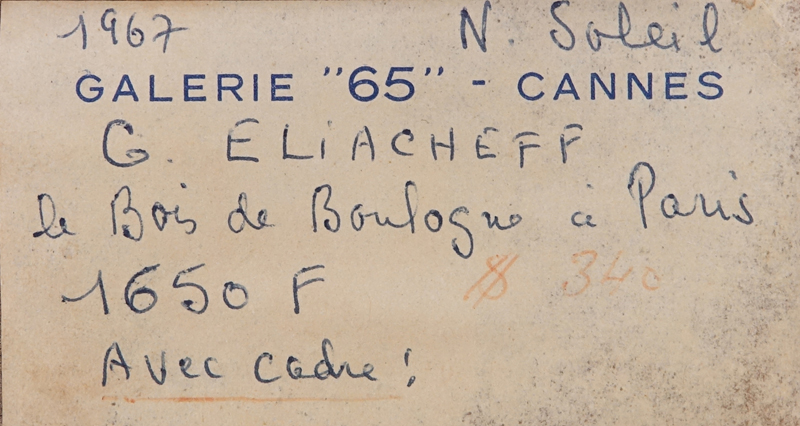 1967 N. Soleil
GALERIE "65" - CANNES
G. ELIACHEFF
le Bois de Boulogne à Paris
1650 F $ 340
Avec cadre!